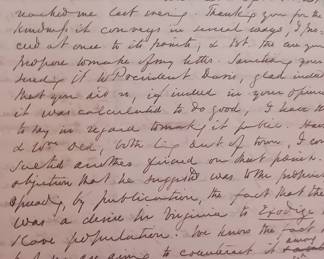 reached me last evening. Thanking you for the
kindness it conveys in several ways, I pro-
ceed at once to its points, & 1st. the use you
propose to make of my letter. Sanctioning your
it to President Davis, glad indeed
that you did so, if indeed in your opinion
it was calculated to do good, I have
to say in regard to making it public.
& Wm being out of town, I con-
sulted another friend on that point.
objection that he suggested was to the propriety
spreading by publication, the fact that there
was a desire in Virginia to Exodize
Slave population. We know the fact
but we are trying to counteract it among